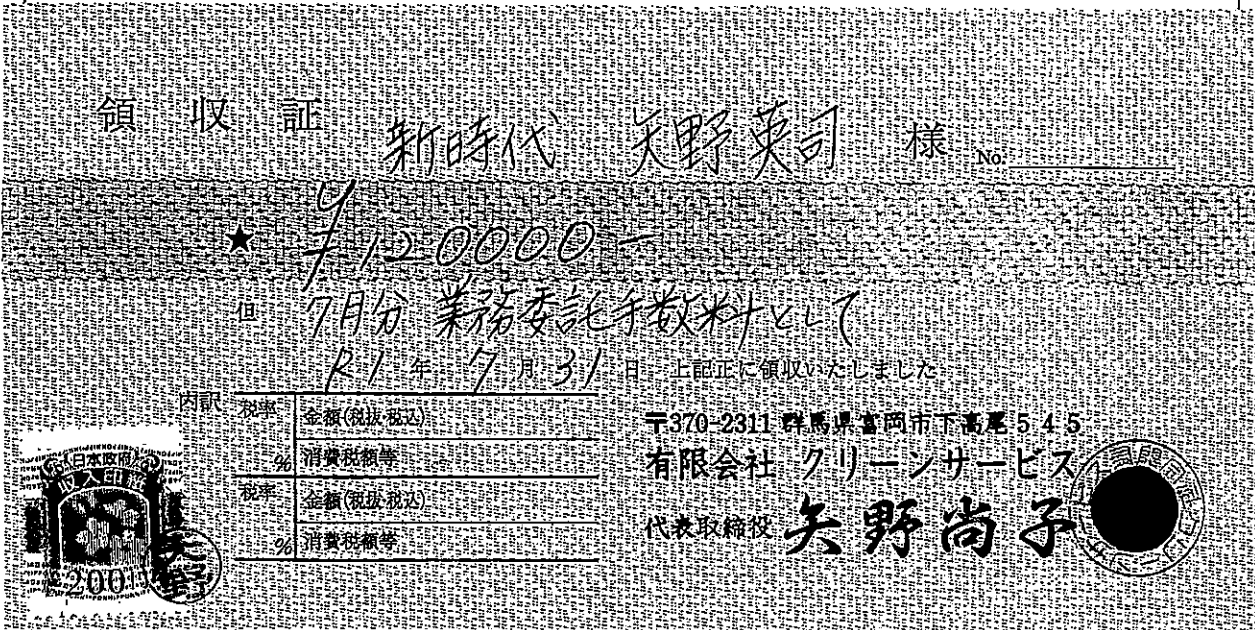 領収証
新時代 矢野英司 様 No.
★ ¥120000-
但 7月分 業務委託手数料として
R1年 7月31日 上記正に領収いたしました
内訳
税率 金額(税抜・税込)
% 消費税額等
税率 金額(税抜・税込)
% 消費税額等
〒370-2311 群馬県富岡市下高尾545
有限会社 クリーンサービス
代表取締役 矢野尚子
日本政府
収入印紙
200
矢野